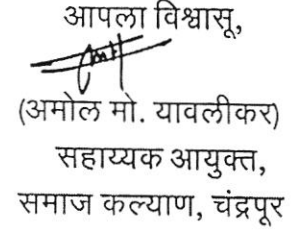 आपला विश्वासू,
(अमोल मो. यावलीकर)
सहाय्यक आयुक्त,
समाज कल्याण, चंद्रपूर